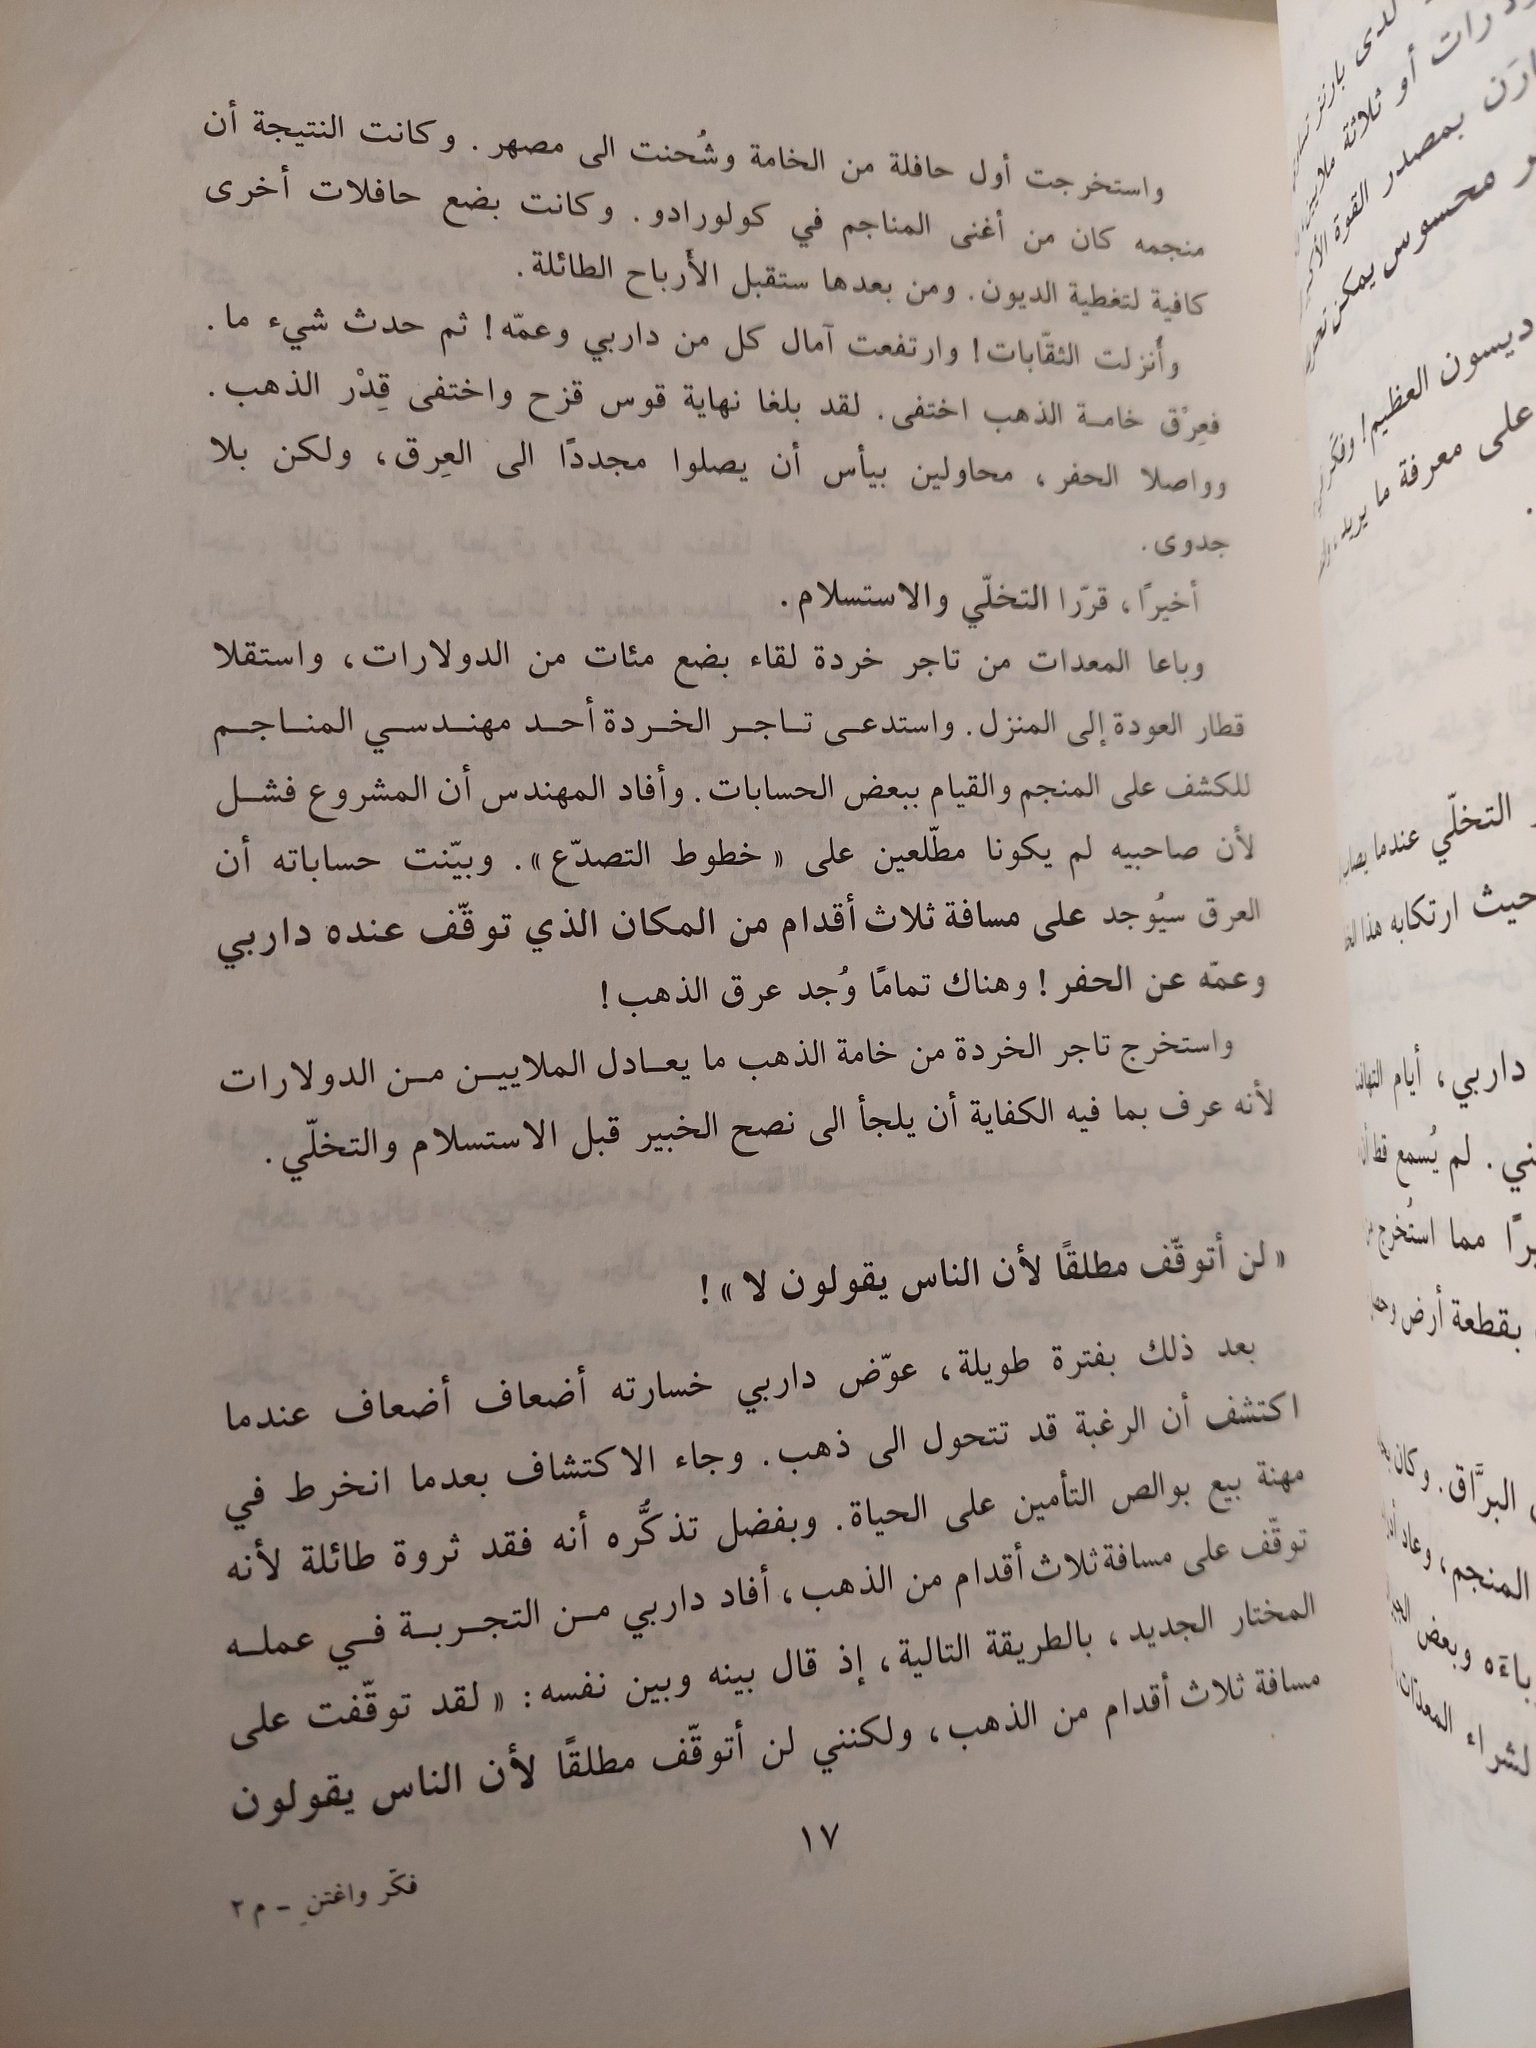 واستخرجت أول حافلة من الخامة وشُحنت الى مصهر. وكانت النتيجة أن
منجمه كان من أغنى المناجم في كولورادو. وكانت بضع حافلات أخرى
كافية لتغطية الديون. ومن بعدها ستقبل الأرباح الطائلة.
وأُنزلت الثقّابات! وارتفعت آمال كل من داربي وعمّه! ثم حدث شيء ما.
فعِرْق خامة الذهب اختفى. لقد بلغا نهاية قوس قزح واختفى قِدْر الذهب.
وواصلا الحفر، محاولين بيأس أن يصلوا مجددًا الى العِرق، ولكن بلا
جدوى.
أخيرًا، قرّرا التخلّي والاستسلام.
وباعا المعدات من تاجر خردة لقاء بضع مئات من الدولارات، واستقلا
قطار العودة إلى المنزل. واستدعى تاجر الخردة أحد مهندسي المناجم
للكشف على المنجم والقيام ببعض الحسابات. وأفاد المهندس أن المشروع فشل
لأن صاحبيه لم يكونا مطّلعين على «خطوط التصدّع». وبيّنت حساباته أن
العرق سيُوجد على مسافة ثلاث أقدام من المكان الذي توقّف عنده داربي
وعمّه عن الحفر! وهناك تمامًا وُجد عرق الذهب!
واستخرج تاجر الخردة من خامة الذهب ما يعادل الملايين من الدولارات
لأنه عرف بما فيه الكفاية أن يلجأ الى نصح الخبير قبل الاستسلام والتخلّي.
«لن أتوقّف مطلقًا لأن الناس يقولون لا»!
بعد ذلك بفترة طويلة، عوّض داربي خسارته أضعاف أضعاف عندما
اكتشف أن الرغبة قد تتحول الى ذهب. وجاء الاكتشاف بعدما انخرط في
مهنة بيع بوالص التأمين على الحياة. وبفضل تذكُّره أنه فقد ثروة طائلة لأنه
توقّف على مسافة ثلاث أقدام من الذهب، أفاد داربي من التجربة في عمله
المختار الجديد، بالطريقة التالية، إذ قال بينه وبين نفسه: «لقد توقّفت على
مسافة ثلاث أقدام من الذهب، ولكنني لن أتوقّف مطلقًا لأن الناس يقولون
١٧
فكّر واغتنِ - م ٢
لدى بارنز
أو ثلاثة
بمصدر القوة
محسوس يمكن
ديسون العظيم!
على معرفة ما يريد
التخلّي عندما
حيث ارتكابه هذا
داربي، أيام
لم يُسمع قط أن
مما استُخرج
بقطعة أرض
البرَّاق. وكان
المنجم، وعاد
وبعض
لشراء المعدّات